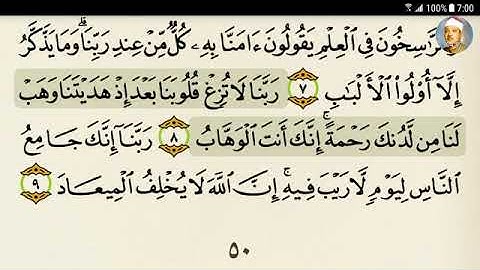 100% 7:00
وَٱلرَّٰسِخُونَ فِى ٱلْعِلْمِ يَقُولُونَ ءَامَنَّا بِهِۦ كُلٌّ مِّنْ عِندِ رَبِّنَا ۗ وَمَا يَذَّكَّرُ
إِلَّآ أُو۟لُوا۟ ٱلْأَلْبَٰبِ ٧ رَبَّنَا لَا تُزِغْ قُلُوبَنَا بَعْدَ إِذْ هَدَيْتَنَا وَهَبْ
لَنَا مِن لَّدُنكَ رَحْمَةً ۚ إِنَّكَ أَنتَ ٱلْوَهَّابُ ٨ رَبَّنَآ إِنَّكَ جَامِعُ
ٱلنَّاسِ لِيَوْمٍ لَّا رَيْبَ فِيهِ ۚ إِنَّ ٱللَّهَ لَا يُخْلِفُ ٱلْمِيعَادَ ٩
٥٠